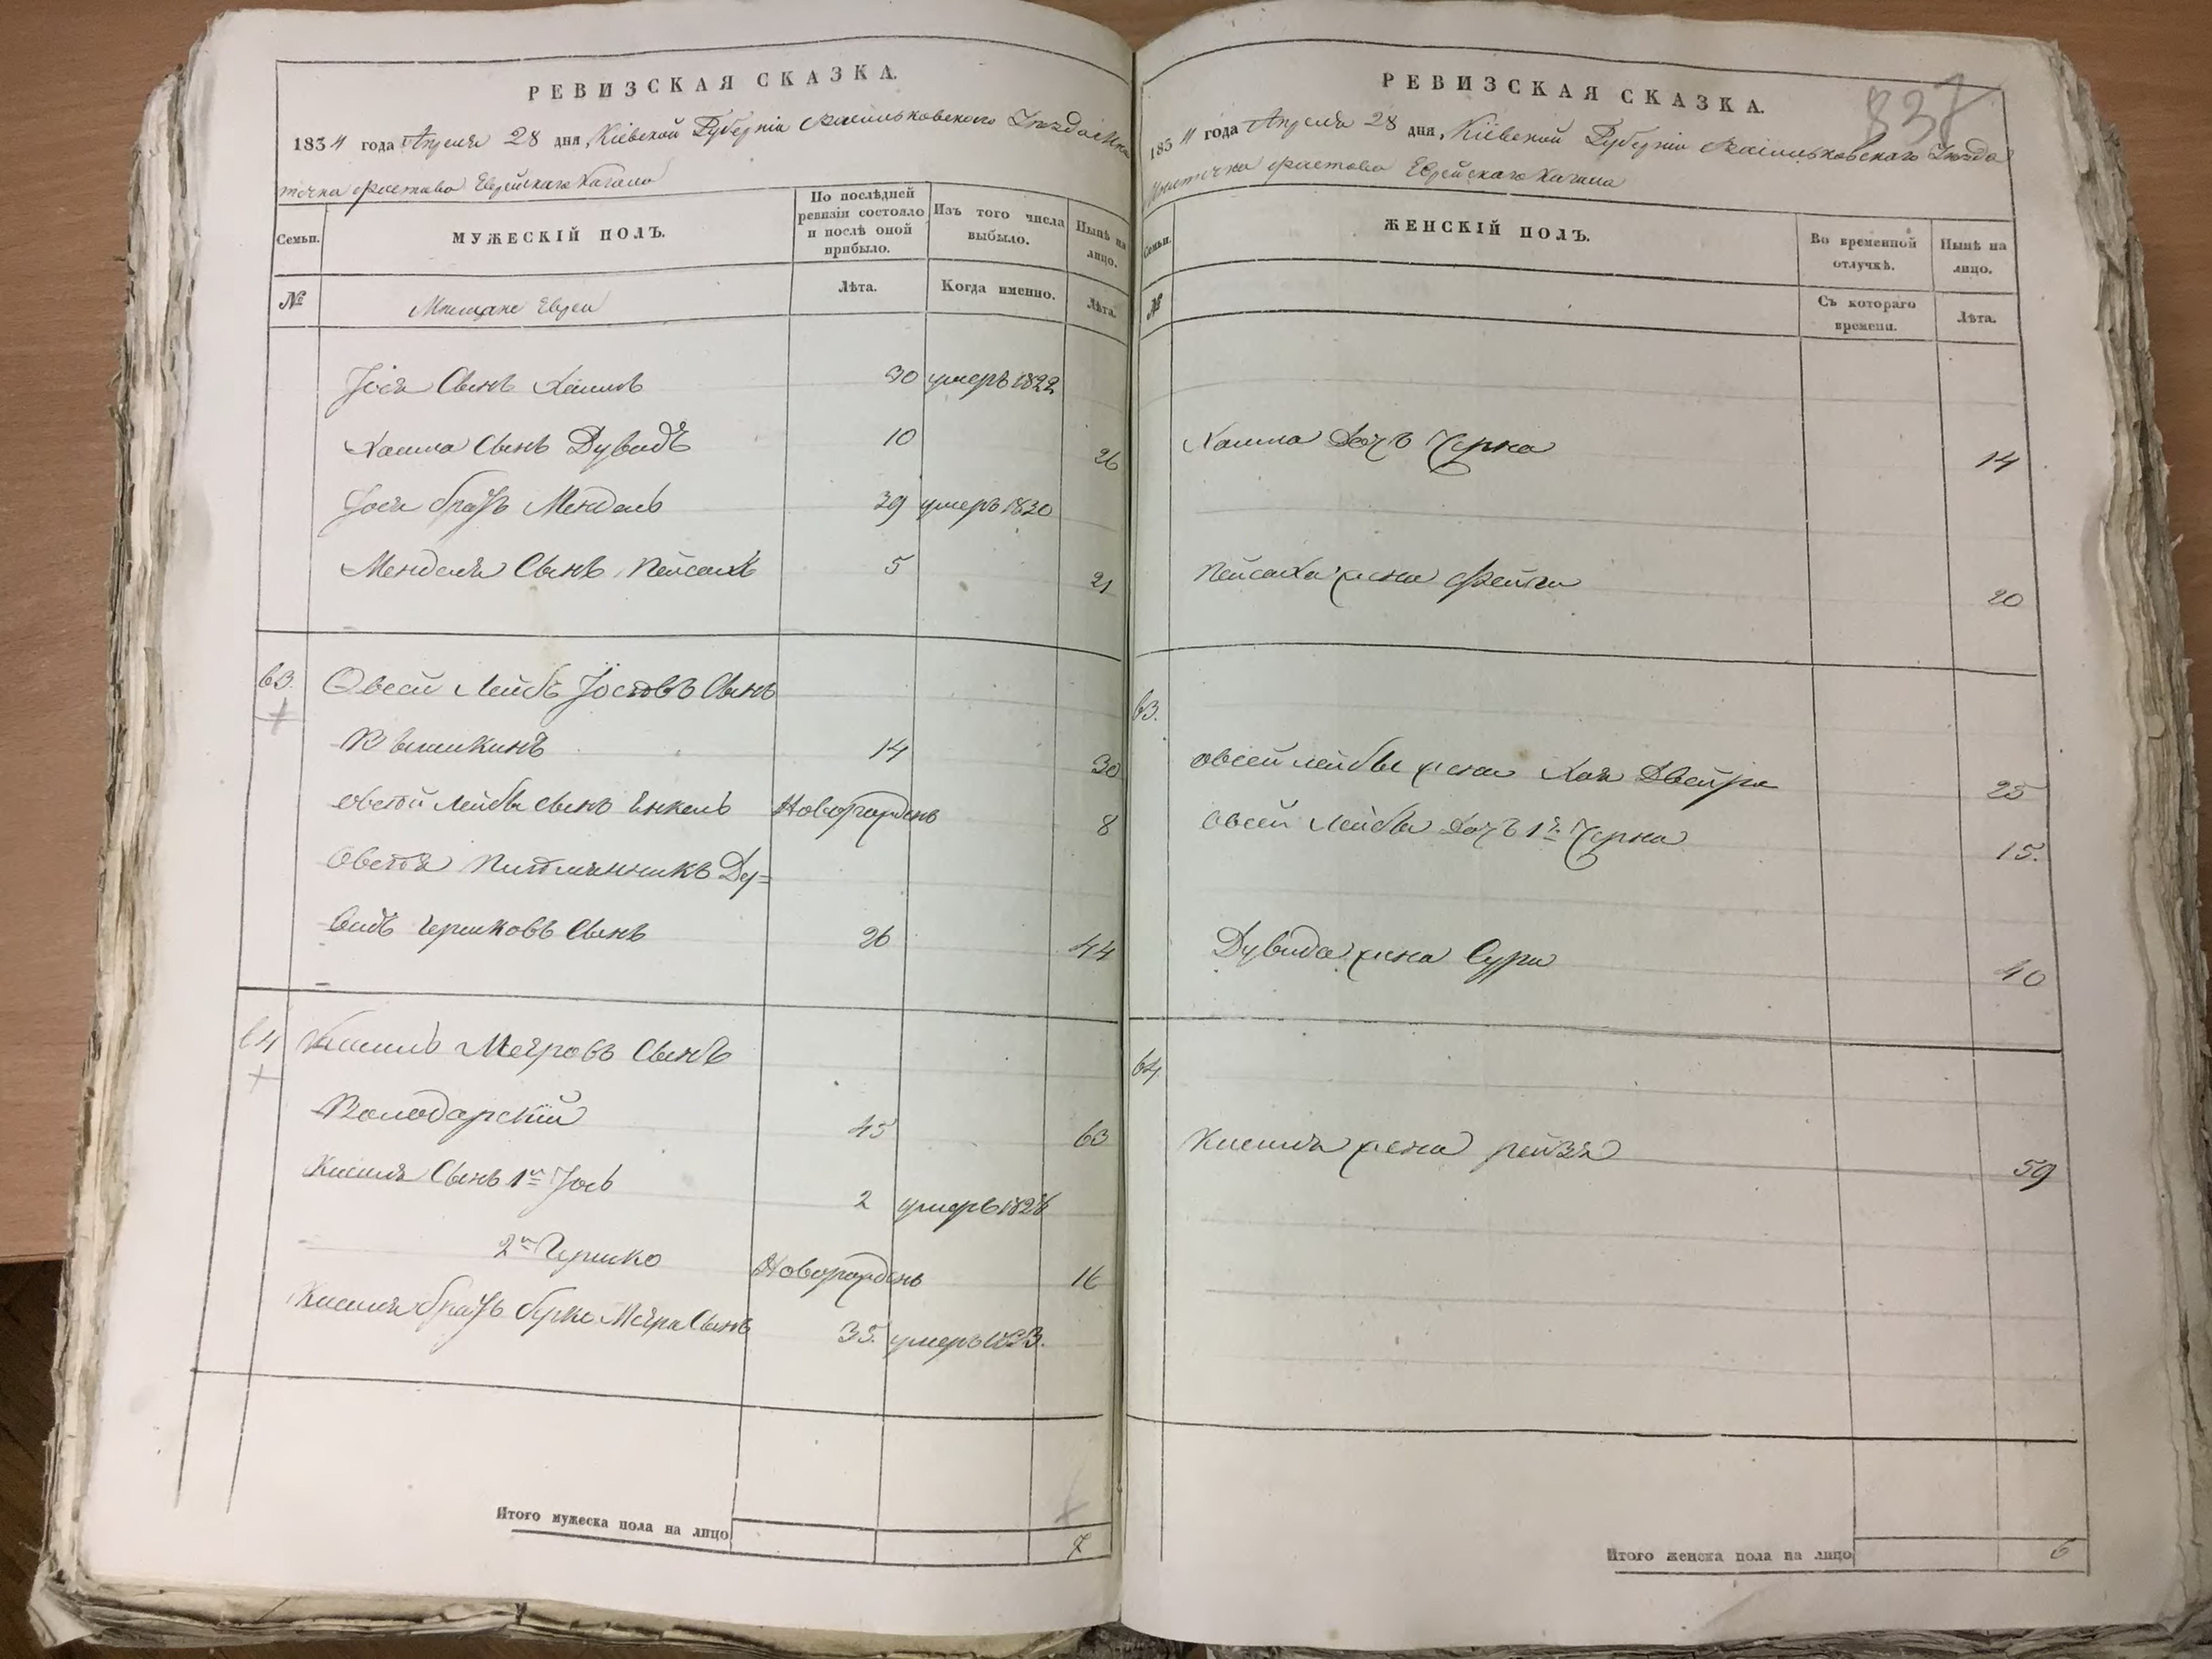 РЕВИЗСКАЯ СКАЗКА.
1834 года Апреля 28 дня, Кіевской Губерніи Васильковского Уезда Мес
течка Фастова Еврейского Кагала
Семьи.
МУЖЕСКІЙ ПОЛЪ.
По послѣдней ревизіи состояло и послѣ оной прибыло.
Изъ того числа выбыло.
Нынѣ на лицо.
№
Мещане Евреи
Лѣта.
Когда именно.
Лѣта.
Іося Сынъ Хаимъ 30 умеръ 1822
Хаима Сынъ Дувидъ 10 26
Іося братъ Мендель 39 умеръ 1830
Менделя Сынъ Пейсахъ 5 21
63. Овсей Лейбъ Іосіовъ Сынъ
14 30
Овсей Лейбы сынъ Янкель Новорожденъ 8
Овсея Племянникъ Ду=
видъ Гершковъ Сынъ 26 44
64 Кисиль Меяровъ Сынъ
Володарскій 45 63
Кисиля Сынъ 1й Іось 2 умеръ 1828
2й Гершко Новорожденъ 16
Кисиля братъ Берко Меяра Сынъ 35. умеръ 1833.
Итого мужеска пола на лицо
7
РЕВИЗСКАЯ СКАЗКА.
837
1834 года Апреля 28 дня, Кіевской Губерніи Васильковского Уезда
Местечка Фастова Еврейского Кагала
Семьи.
ЖЕНСКІЙ ПОЛЪ.
Во временной отлучкѣ.
Нынѣ на лицо.
№
Съ котораго времени.
Лѣта.
Хаима Дочь Черна 14
Пейсаха жена Фейга 20
63.
Овсей Лейбы жена Хая Двейра 25
Овсей Лейбы Дочь 1я Черна 15.
Дувида жена Сура 40
64.
Кисиля жена Рейзя 59
Итого женска пола на лицо
6